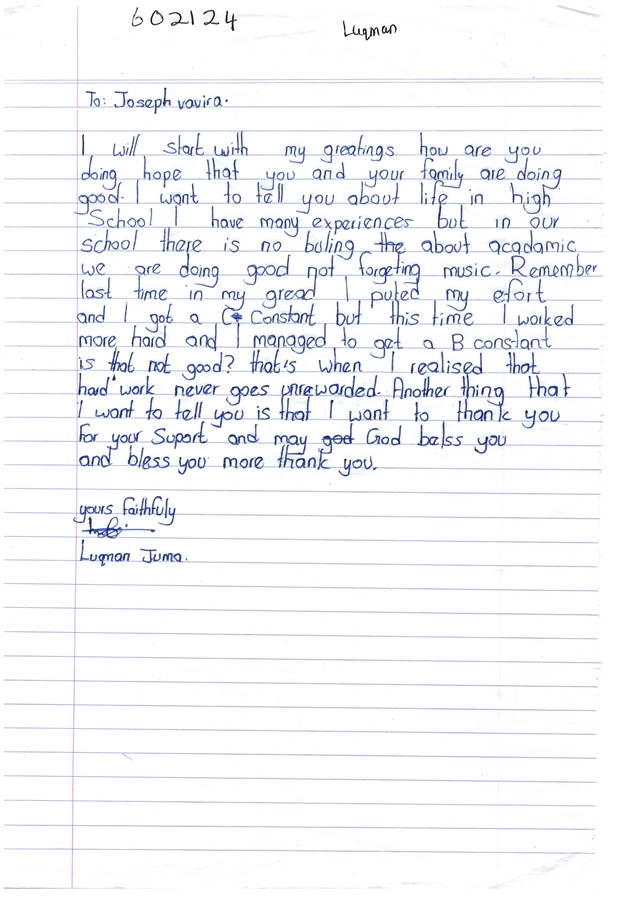 602124
Luqman
To: Joseph vavira.
I will start with my greatings how are you
doing hope that you and your family are doing
good. I want to tell you about life in high
School I have many experiences but in our
school there is no buling the about acadamic
we are doing good not forgeting music. Remember
last time in my gread I puted my efort
and I got a C Constant but this time I worked
more hard and I managed to get a B constant
is that not good? that's when I realised that
hard work never goes unrewarded. Another thing that
I want to tell you is that I want to thank you
For your Suport and may god God belss you
and bless you more thank you.
yours faithfuly
Luqman Juma.